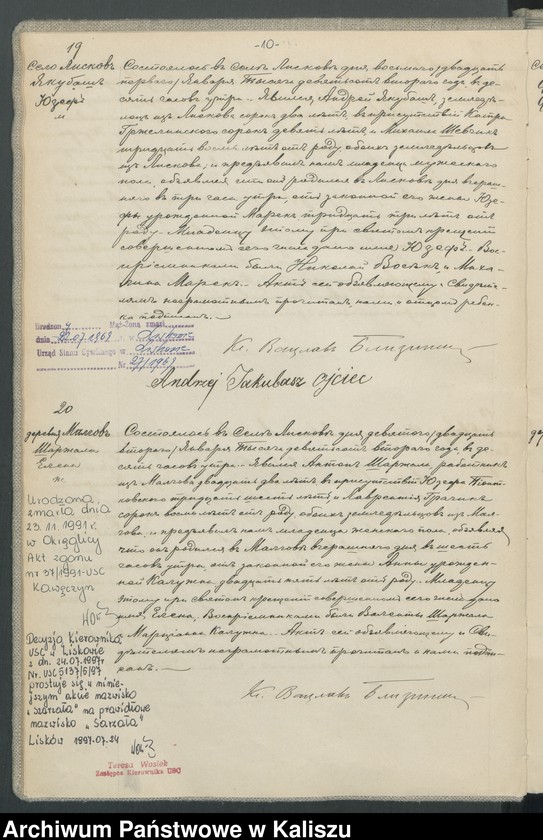 -10-
19
Село Лисковъ
Якубашъ
Юзефъ
м
Состоялось въ Селѣ Лисковѣ дня восьмаго /двадцать
перваго/ Января Тысяча девятьсотъ втораго года въ де-
сять часовъ утра. Явился Андрей Якубашъ, земледѣ-
лецъ изъ Лискова сорока двухъ лѣтъ, въ присутствіи
сорока девяти лѣтъ, и Михаила Шевчика
тридцати восьми лѣтъ отъ роду обоихъ земледѣльцовъ
изъ Лискова, и предъявилъ намъ младенца мужескаго
пола, объявляя что онъ родился въ Лисковѣ дня вчераш-
няго въ три часа утра, отъ законной его жены Юзе-
фы урожденной Марекъ тридцати трехъ лѣтъ отъ
роду. Младенцу этому при святомъ крещеніи
совершенномъ сего числа дано имя Юзефъ. Вос-
пріемниками были Николай и
Марекъ. Актъ сей объявляющему и Свидѣте-
лямъ неграмотнымъ прочитанъ, нами и отцомъ ребен-
ка подписанъ.
Кс. Вацлавъ Близинскій
Andrzej Jakubasz ojciec
Urodzon y Mąż-Żona zmarł
dnia 22.07.1963 r. w
Urząd Stanu Cywilnego w
Nr 27/1963
20
деревня Малговъ
Шаржала
Елена
ж.
Состоялось въ Селѣ Лисковѣ дня девятаго /двадцать
втораго/ Января Тысяча девятьсотъ втораго года въ де-
сять часовъ утра. Явился Антонъ Шаржала, работникъ
изъ Малгова двадцати двухъ лѣтъ въ присутствіи Юзефа
тридцати шести лѣтъ, и Лаврентія
сорока восьми лѣтъ отъ роду, обоихъ земледѣльцовъ изъ Мал-
гова, и предъявилъ намъ младенца женскаго пола, объявляя
что онъ родился въ Малговѣ вчерашняго дня, въ шесть
часовъ утра, отъ законной его жены Анны урожден-
ной Калужна двадцати пяти лѣтъ отъ роду. Младенцу
этому при святомъ крещеніи совершенномъ сего числа дано
имя Елена, Воспріемниками были Валентій Шаржала
и Марьянна Калужна. Актъ сей объявляющему и Сви-
дѣтелямъ неграмотнымъ прочитанъ и нами подпи-
санъ.
Кс. Вацлавъ Близинскій
Urodzona
zmarła dnia
23.11.1991 r.
w Okręglicy
Akt zgonu
nr 37/1991-USC
Kawęczyn
Decyzją Kierownika
USC w Liskowie
z dn. 24.07.1997r
Nr. USC 5137/6/97
prostuje się w niniej-
szym akcie nazwisko
„Szarzała" na prawidłowe
nazwisko „Sarzała"
Lisków 1997.07.24
Teresa Wasiek
Zastępca Kierownika USC
Archiwum Państwowe w Kaliszu